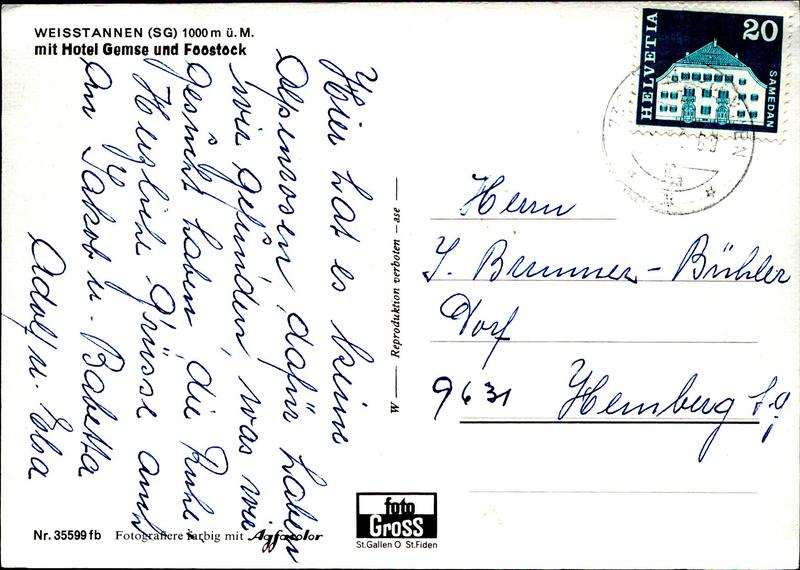 WEISSTANNEN (SG) 1000 m ü. M.
mit Hotel Gemse und Foostock
Hier hat es keine
Alpenrosen, dafür haben
wir gefunden, was wir
gesucht haben, die Ruhe.
Herzliche Grüsse auch
an Jakob u. Babetta
Adolf u. Elsa
Nr. 35599 fb Fotografiere farbig mit Agfacolor
W — Reproduktion verboten – ase —
foto
GROSS
St. Gallen O St. Fiden
HELVETIA
20
SAMEDAN
Herrn
J. Brunner-Bühler
Dorf
9631 Hemberg S.G.